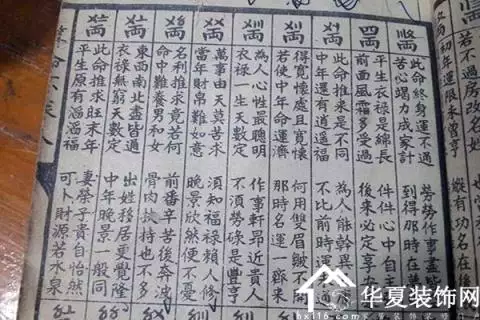 若不過房改名姓
初年運限未曾亨
縱有功名在後
此命終身運不通
勞勞作事盡
苦心竭力成家計
到得那時在
四兩
平生衣祿是綿長
件件心中自
前面風霜多受過
後來必定享
此命推來是不同
為人能幹異
中年還有逍遥福
不比前時運
得寬懷處且寬懷
何用雙眉皺不開
若使中年命運濟
那時名運一齊來
為人心性最聰明
作事軒昂近貴人
衣祿一生天數定
不須勞碌是豐亨
萬事由天莫苦求
須知福祿賴人修
當年財帛難如意
晚景欣然便不憂
名利推求竟若何
前番辛苦後奔波
命中難養男和女
骨肉扶持也不多
東西南北盡皆通
出姓移居更覺隆
衣祿無窮天數定
中年晚景一般同
此命推求旺末年
妻榮子貴自怡然
平生原有滔滔福
可卜財源若水泉
华夏装饰网